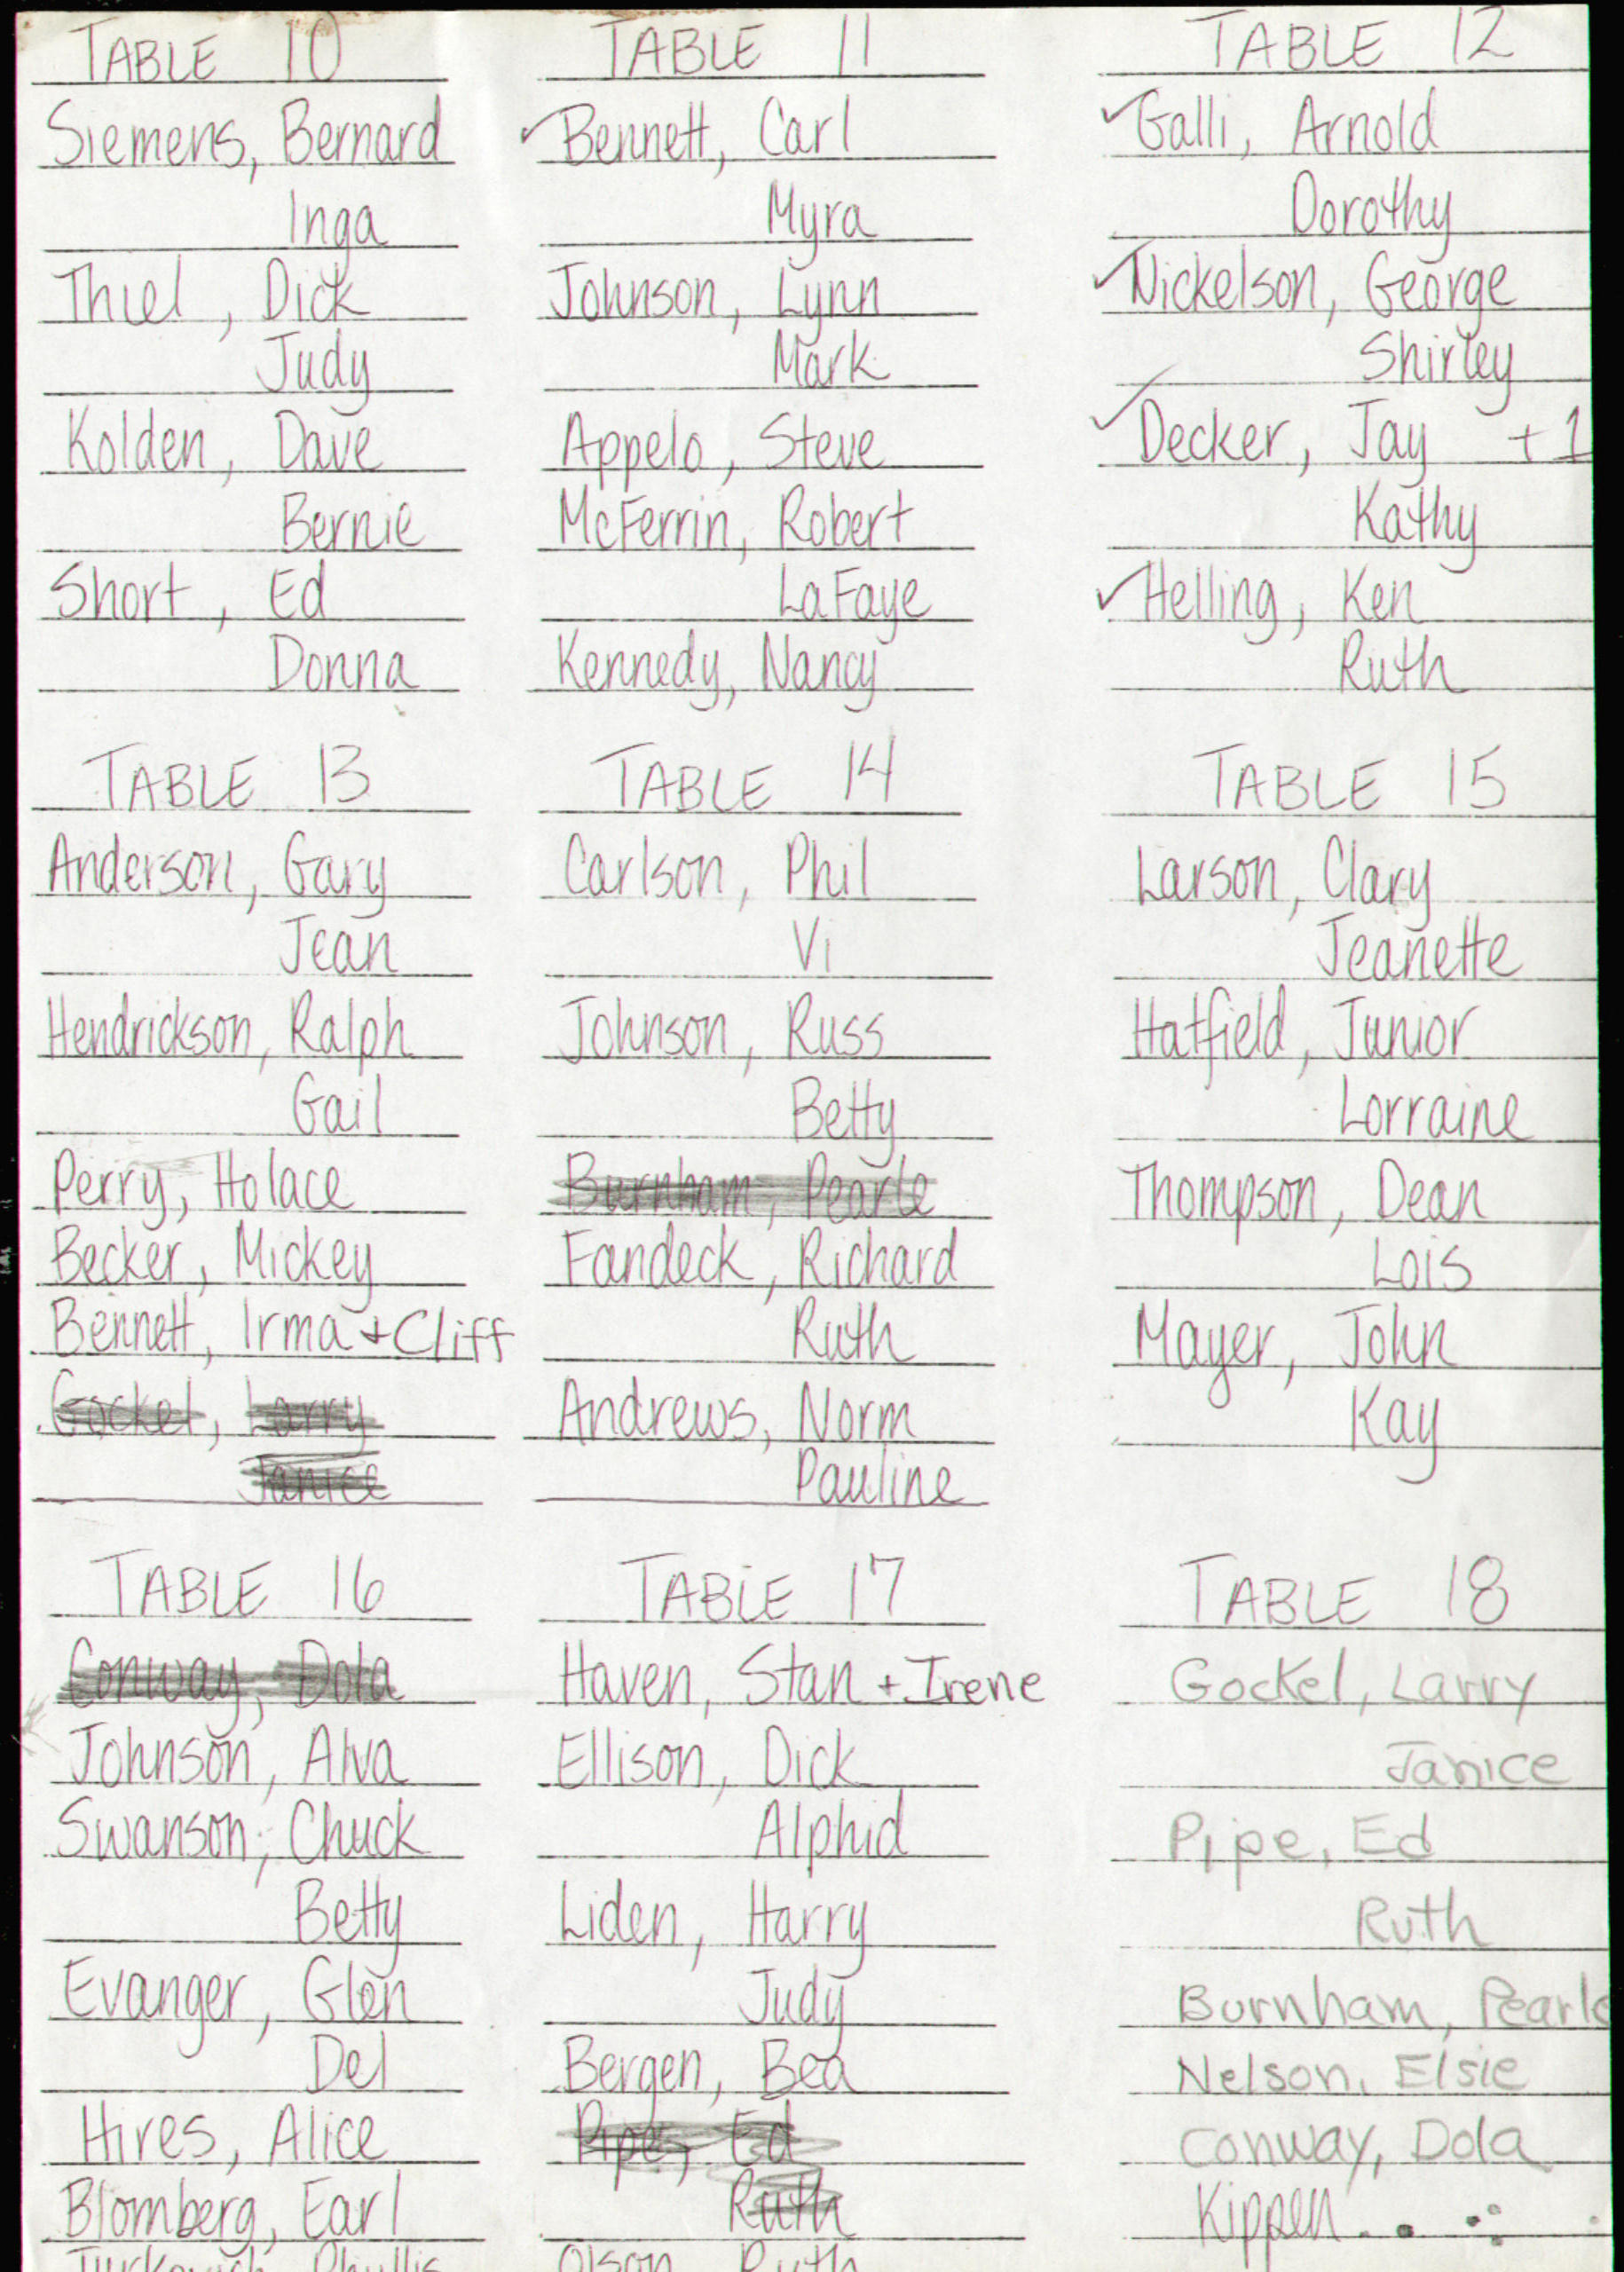 TABLE 10
Siemens, Bernard
Inga
Thiel, Dick
Judy
Kolden, Dave
Bernie
Short, Ed
Donna
TABLE 11
✓Bennett, Carl
Myra
Johnson, Lynn
Mark
Appelo, Steve
McFerrin, Robert
LaFaye
Kennedy, Nancy
TABLE 12
✓Galli, Arnold
Dorothy
✓Nickelson, George
Shirley
✓Decker, Jay +1
Kathy
✓Helling, Ken
Ruth
TABLE 13
Anderson, Gary
Jean
Hendrickson, Ralph
Gail
Perry, Holace
Becker, Mickey
Bennett, Irma + Cliff
Gockel, Larry
Janice
TABLE 14
Carlson, Phil
Vi
Johnson, Russ
Betty
Burnham, Pearle
Fandeck, Richard
Ruth
Andrews, Norm
Pauline
TABLE 15
Larson, Clary
Jeanette
Hatfield, Junior
Lorraine
Thompson, Dean
Lois
Mayer, John
Kay
TABLE 16
Conway, Dola
Johnson, Alva
Swanson, Chuck
Betty
Evanger, Glen
Del
Hires, Alice
Blomberg, Earl
Phyllis
TABLE 17
Haven, Stan + Irene
Ellison, Dick
Alphid
Liden, Harry
Judy
Bergen, Bea
Pipe, Ed
Ruth
Olson, Ruth
TABLE 18
Gockel, Larry
Janice
Pipe, Ed
Ruth
Burnham, Pearle
Nelson, Elsie
Conway, Dola
Kippen